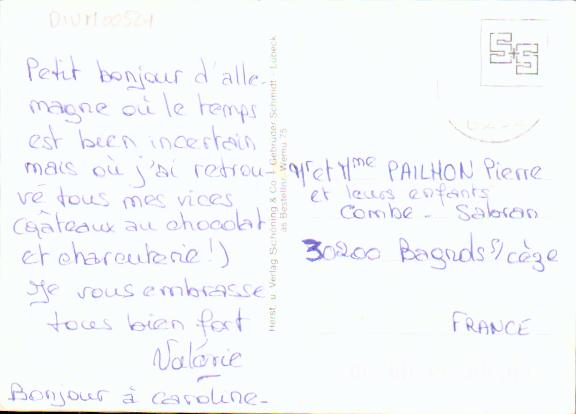 DIUM00521
Petit bonjour d'alle-
magne où le temps
est bien incertain
mais où j'ai retrou-
vé tous mes vices
(gâteaux au chocolat
et charcuterie!)
Je vous embrasse
tous bien fort
Valérie
Bonjour à Caroline-
Herst. u. Verlag Schöning & Co + Gebrüder Schmidt · Lübeck
as Bestellnr. Wemu 75
S+S
Mr et Mme PAILHON Pierre
et leurs enfants
Combe - Sabran
30200 Bagnols s/cèze
FRANCE